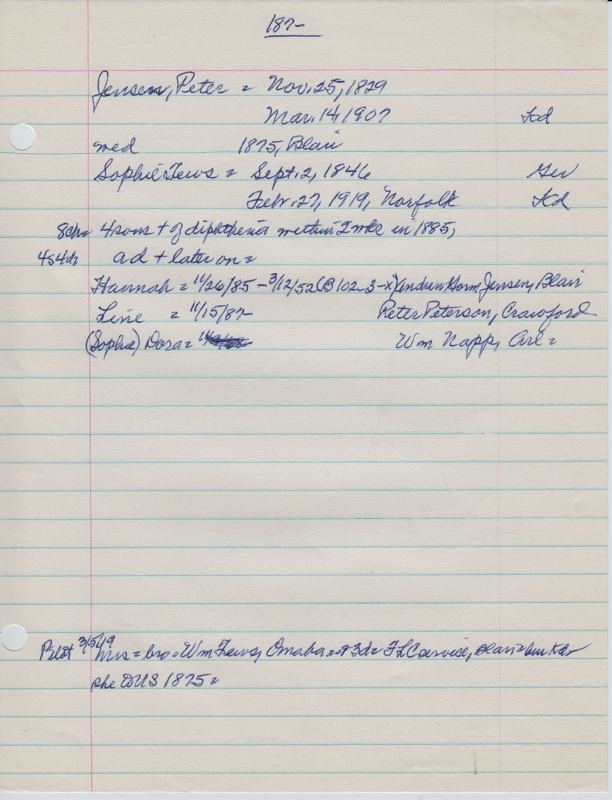 187-
Jensen, Peter = Nov. 25, 1829
Mar. 14, 1907 Kd
med 1875, Blair
Sophie Tews = Sept. 2, 1846 Ger
Febr. 27, 1919, Norfolk Kd
8ch= 4 sons + of diphtheria within 2 wks in 1885,
4s4d: ad + later on =
Hannah = 11/26/85 - 3/12/52 (B 102-3-x) Andrew Horm. Jensen, Blair
Line = 11/15/87 Peter Peterson, Crawford
(Sophie) Dora = Wm Napp, Arl =
Pilot 3/5/19 Mrs = bro = Wm Tews, Omaha = + 3d = FLC service, Blair = bur Kd
she to US 1875 =